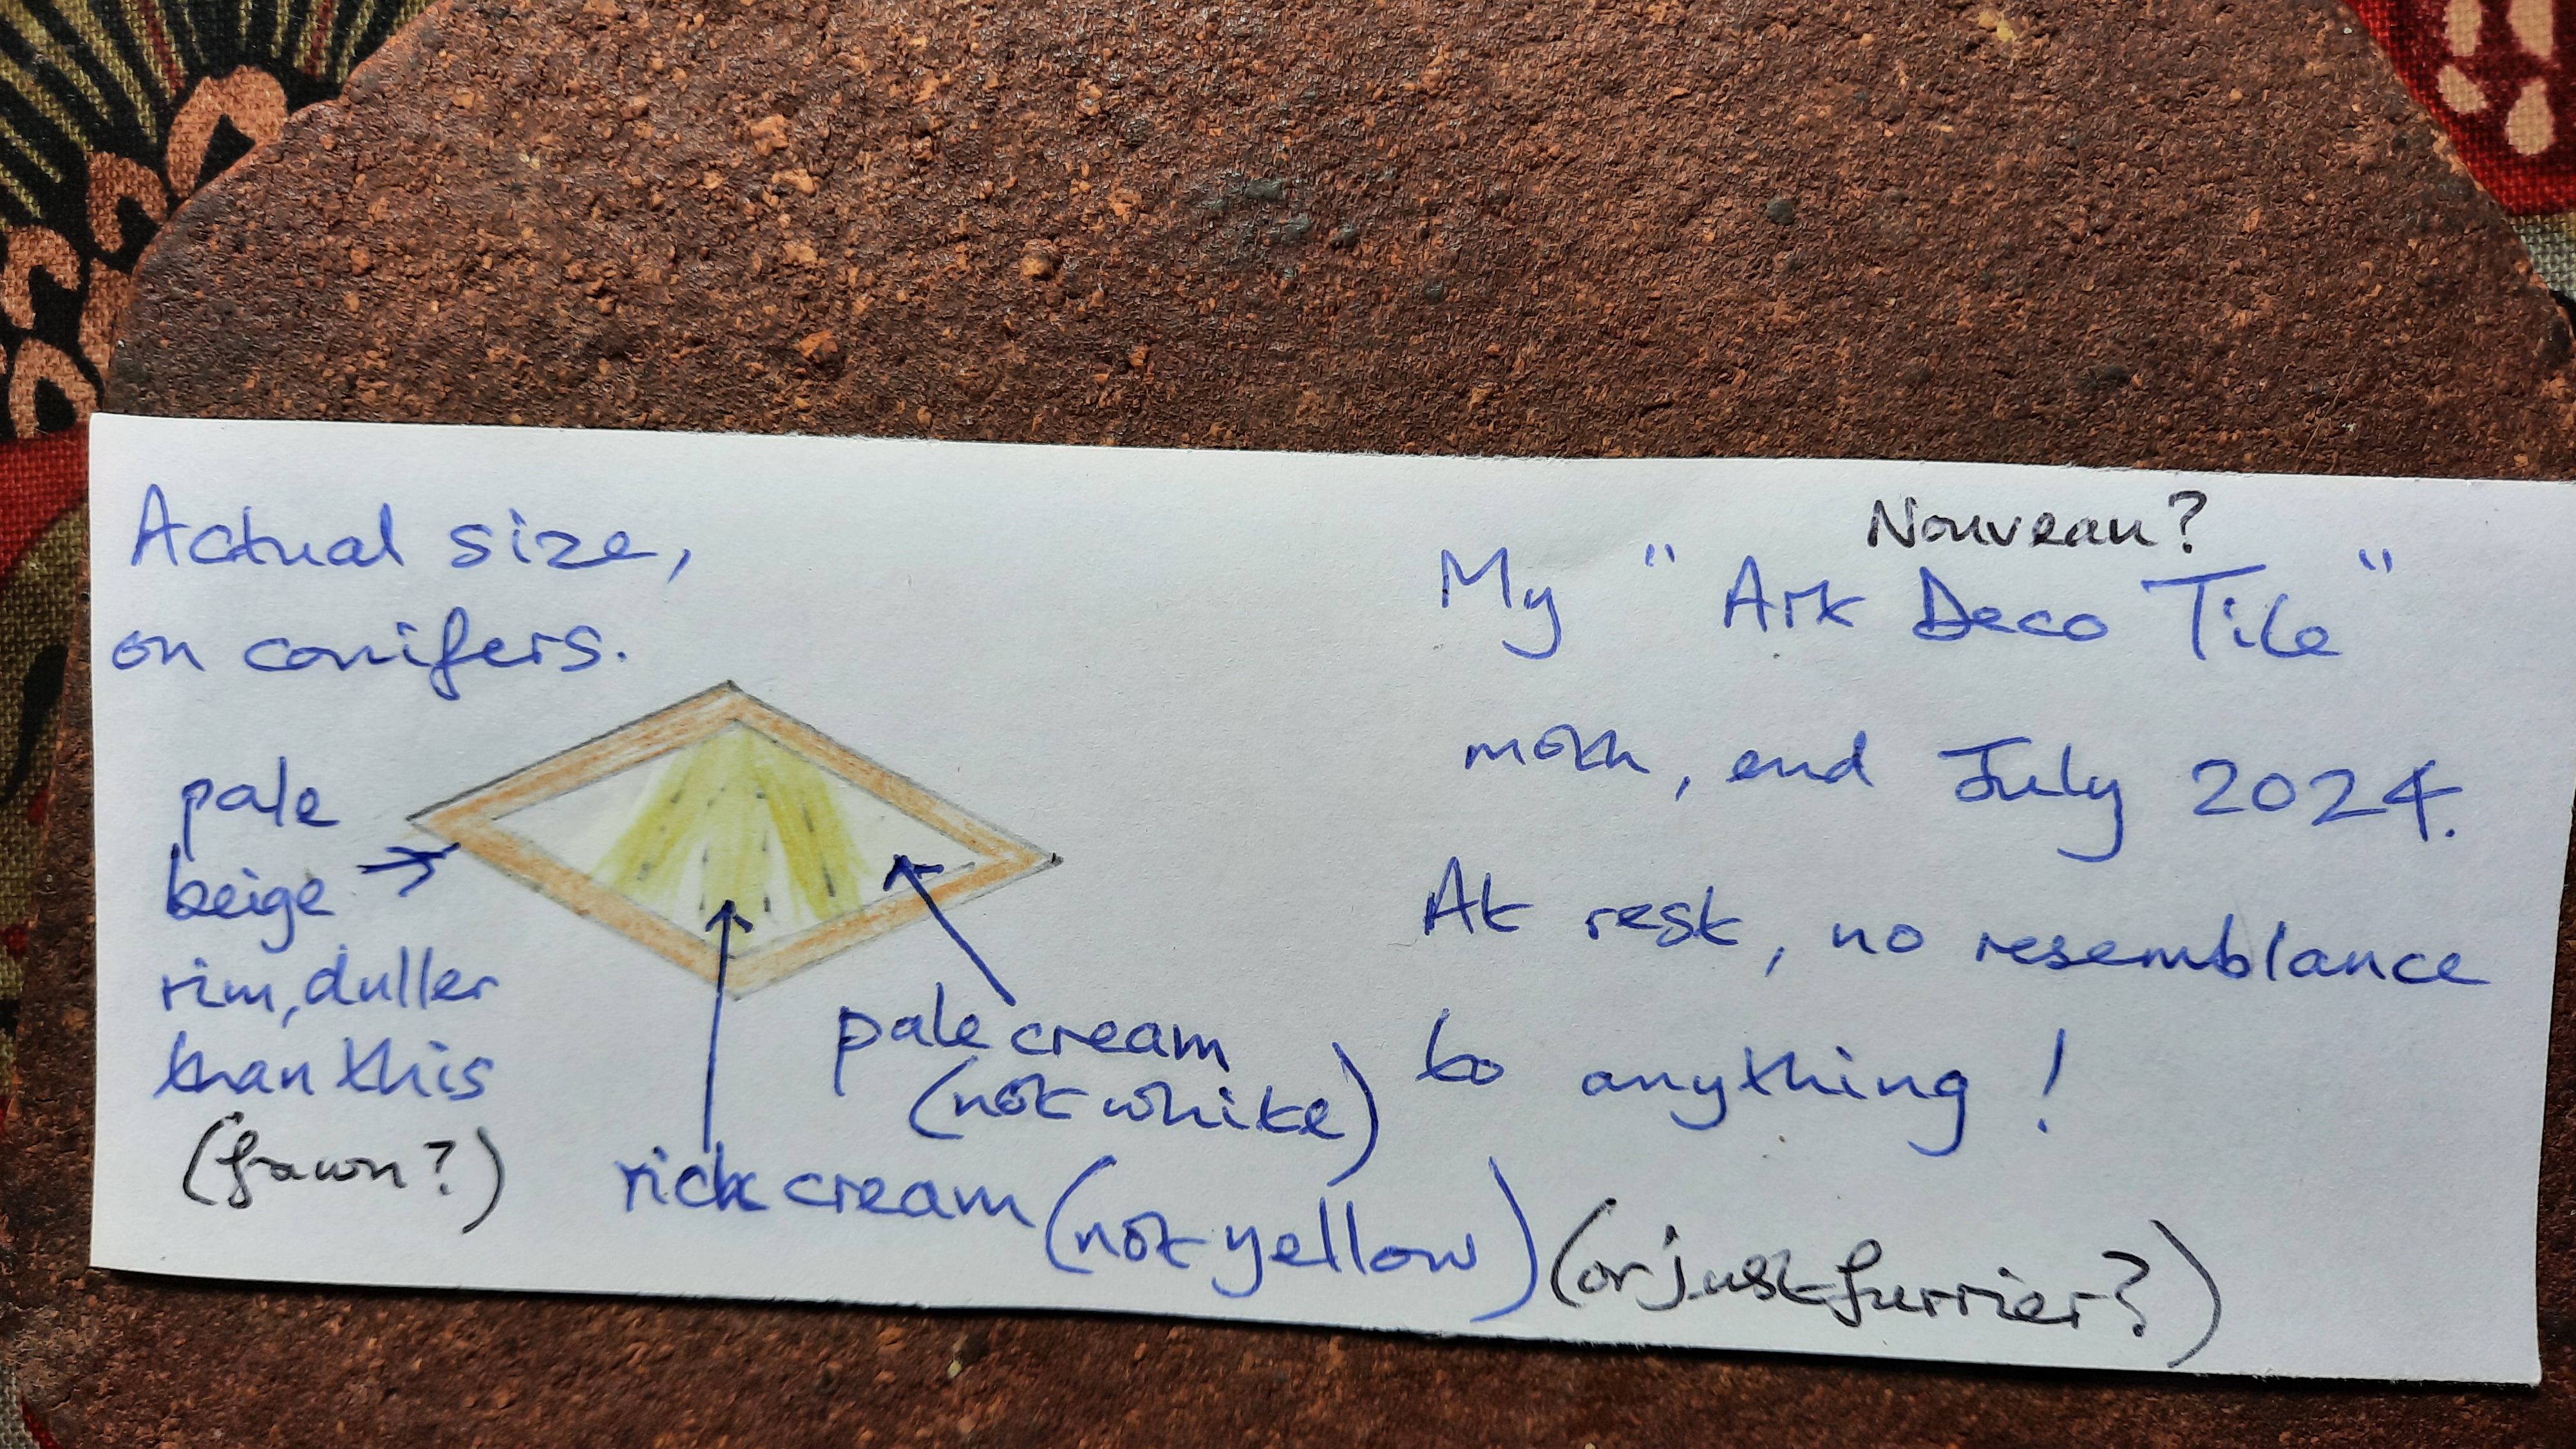 Actual size,
on conifers.
pale
beige
rim, duller
than this
(fawn?)
pale cream
(not white)
rich cream (not yellow) (or just furrier?)
Nouveau?
My "Art Deco Tile"
moth, end July 2024.
At rest, no resemblance
to anything!